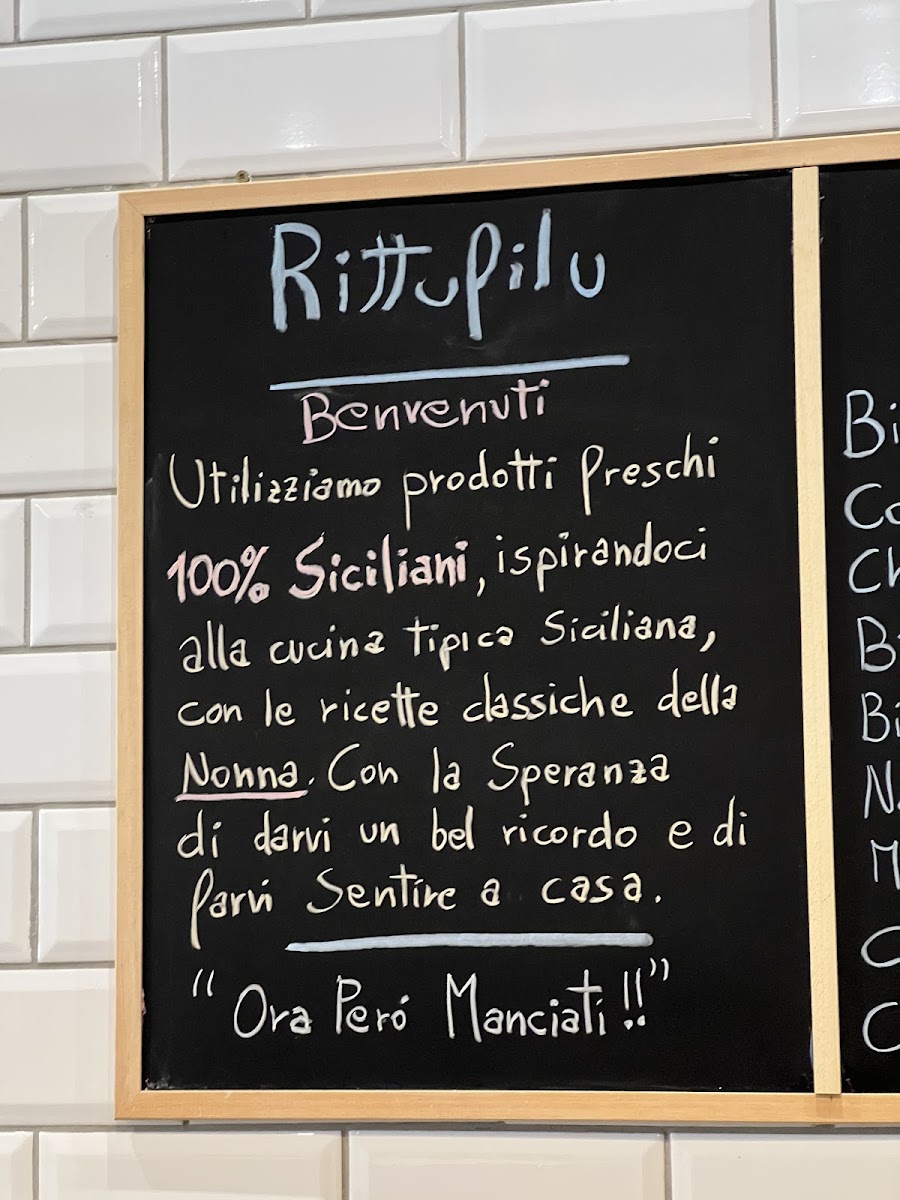 Rittupilu
Benvenuti
Utilizziamo prodotti freschi
100% Siciliani, ispirandoci
alla cucina tipica Siciliana,
con le ricette classiche della
Nonna. Con la Speranza
di darvi un bel ricordo e di
farvi Sentire a casa.
"Ora Peró Manciati!!"